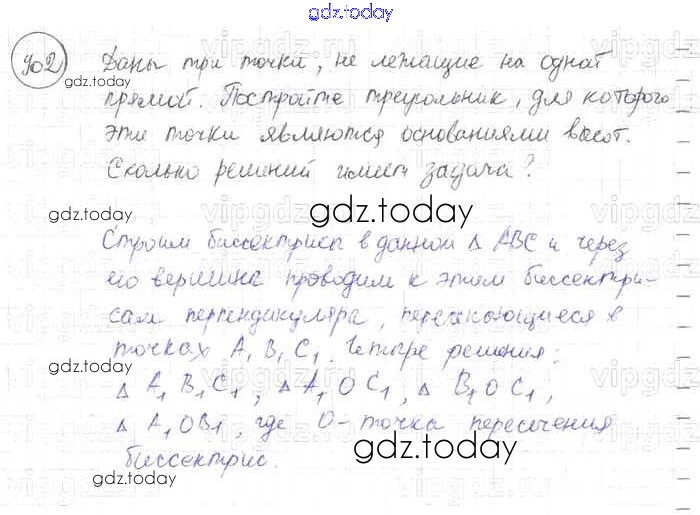 gdz.today
702 Даны три точки, не лежащие на одной
gdz.today
прямой. Постройте треугольник, для которого
эти точки являются основаниями высот.
Сколько решений имеет задача?
gdz.today
gdz.today
Строим биссектрисы в данном △ ABC и через
его вершины проводим к этим биссектри-
сам перпендикуляры, пересекающиеся в
gdz.today
точках A₁ B₁ C₁. Четыре решения:
△ A₁ B₁ C₁, △ A₁ O C₁, △ B₁ O C₁,
△ A₁ O B₁, где O - точка пересечения
биссектрис.
gdz.today